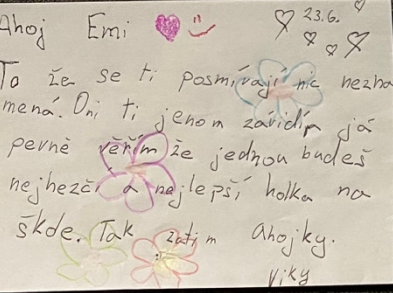 Ahoj Emi 23.6.
To že se ti posmívají nic nezna
mená. Oni ti jenom závidíp já
pevně věřím že jednou budeš
nejhezčí a nejlepší holka na
škde. Tak zatim ahojky.
Viky